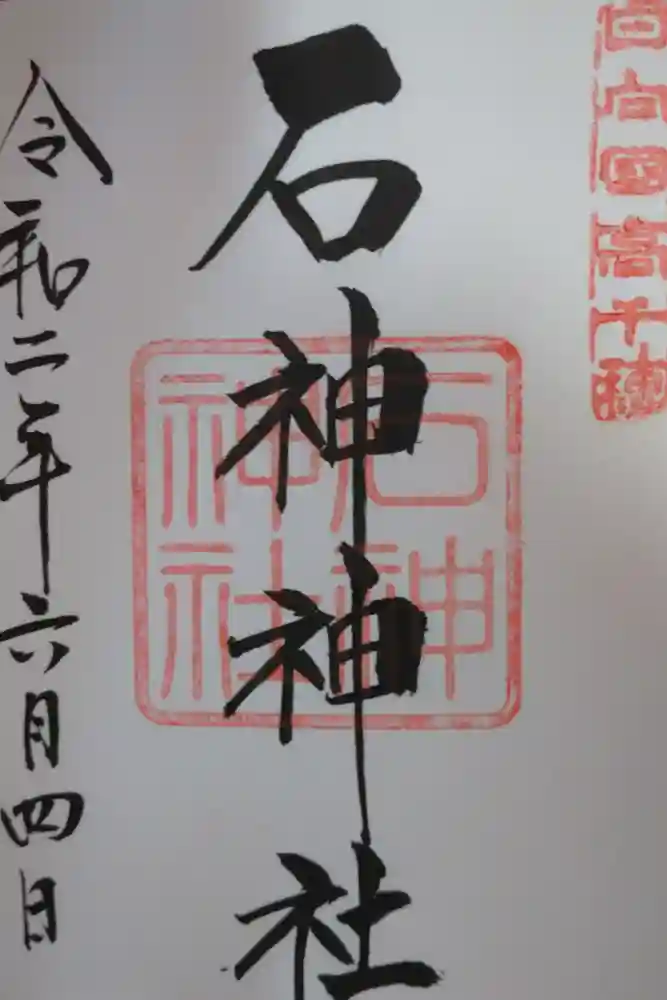 日向国高千穂
石神神社
石神
神社
令和二年六月四日